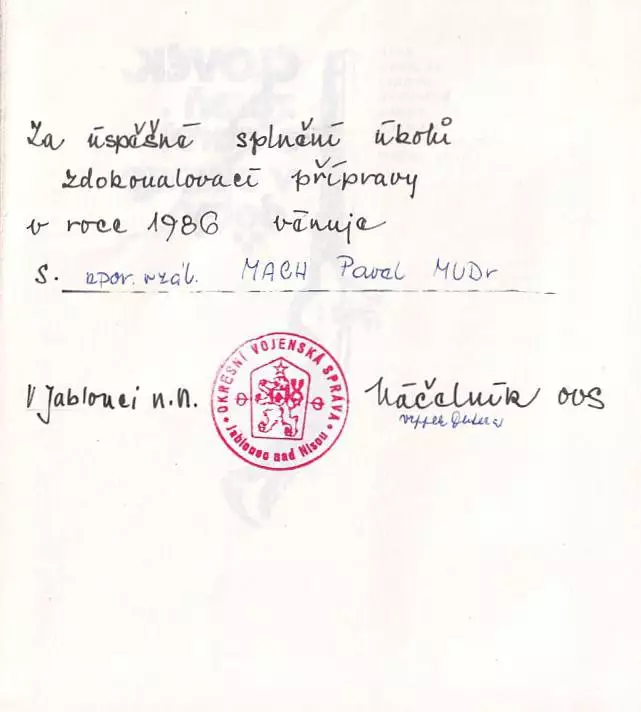 Za úspěšné splnění úkolů
zdokonalovací přípravy
v roce 1986 věnuje
S. npor. v zál. MACH Pavel MUDr
V Jablonci n.N.
OKRESNÍ VOJENSKÁ SPRÁVA
Jablonec nad Nisou
Náčelník OVS